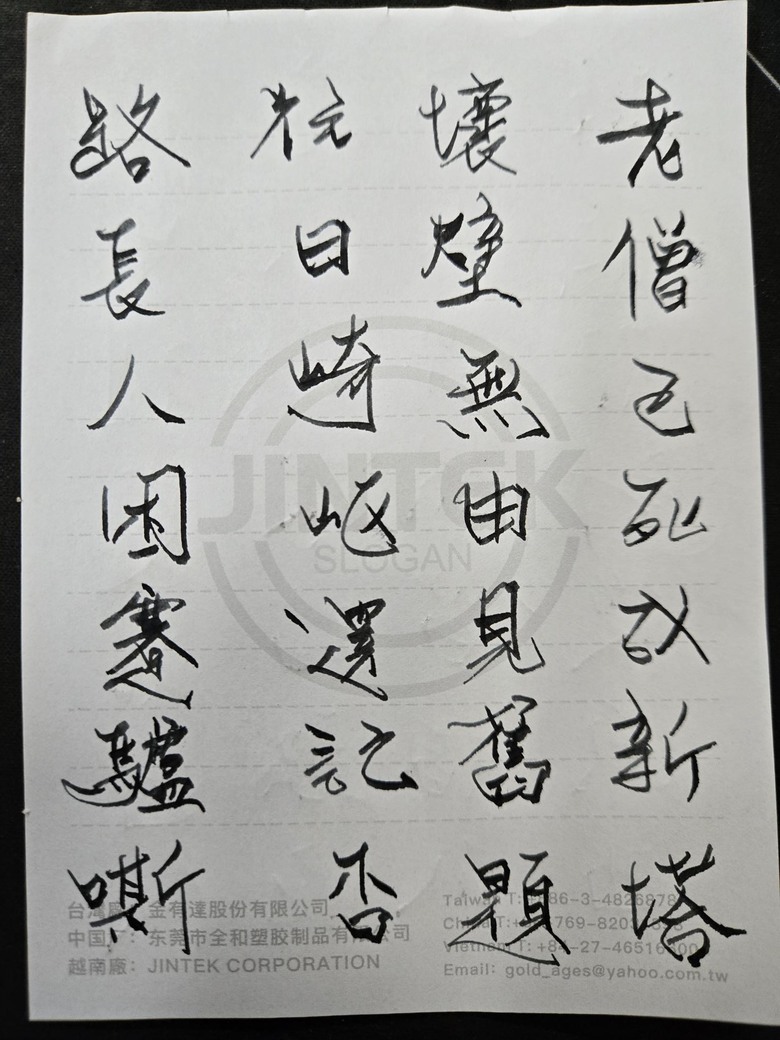 老僧已死成新塔
壞壁無由見舊題
往日崎岖還記否
路長人困蹇驢嘶
JINTEK
SLOGAN
台灣廠：金有達股份有限公司
中国厂：东莞市全和塑胶制品有限公司
越南廠：JINTEK CORPORATION
Taiwan T:
China T:
Vietnam T:
Email: gold_ages@yahoo.com.tw